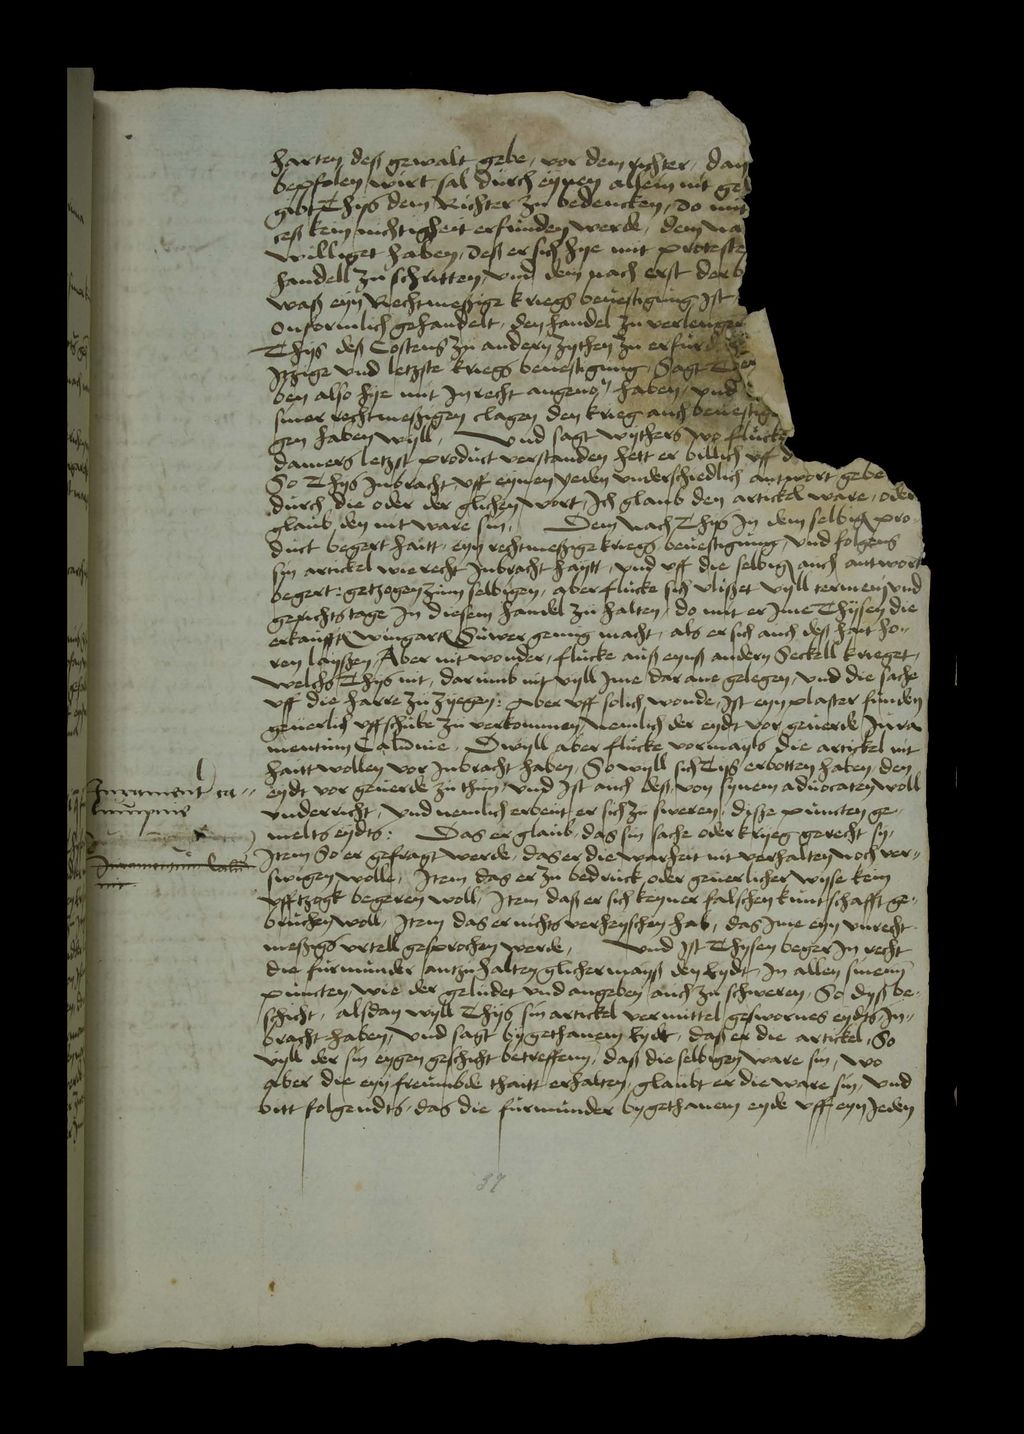 harten deß gewalt gebe, vor dem richter, dan
bepfolen wirt sal durch eynen allein nit gel
gibt Thyß dem Richter zu bedencken, do mit
ceß kein nichtigheit erfunden werde, dem na
williget haben, deß er sich hye mit proteste
handell zu schritten, und dem nach erst der b
waß eyn Rechtmeßige kriegs bevestigung ist
onformlich gehandelt, den handel zu verlenger
Thyß deß Costens zu andern zythen zu erfurd
Itzige und letzste kriegs bevestigung, Sagt
ben also hye mit In recht angeno haben, und
siner rechtmeßigen clagen den krieg auch bevestig
gen haben wyll, Und sagt wythers wo flucke
damers letzst product verstanden hett er billich uff d
So Thyß Inbracht uff eynen yeden underschiedlich antwort gebe
durch die oder der glichen wort, Ich glaub den artickel ware, oder
glaub den nit ware sin, Dem nach Thyß In dem selbig pro-
duct begert haitt, eyn rechtmeßige kriegs bevestigung, und folgens
sin artickel wie recht Inbracht haytt, und uff die selbig auch antwort
begert, getzogen zum selbigen, aber flucke sich vlißet vyll termenß und
gerichts tage In diesem handel zu halten, do mit er Ime Thyßen die
erkaufft wingart Suwer genug macht, als er sich auch deß hait ho-
ren layßen, Aber nit wonder, flucke auß eynß andern Seckell krieget,
welchs Thyß nit, darumb nit vyll Ime dar ane gelegen, und die sache
uff die harre zu zyegen, Aber uff solich wonde, Ist eyn plaster funden
geverlich uffschube zu verkommen, Nemlich der eydt vor geverde Jura
mentum Calumnie, Dwyll aber flucke vormayls die artickel nit
haitt wollen vor Inbracht haben, So wyll sich Thyß erbotten haben, den
Jurament ca-
lumpnie
eydt vor geverde zu thun, und Ist auch deß von synem advocaten woll
underricht, und nemlich erbeut er sich zu sweren, diße puncten ge-
melts eydts: Das er glaub, das sin sache oder kryeg gerecht sy,
Juramentum Calum
nie
Item So er gefragt werde, das er die warheit nit verhalten noch ver-
swigen wolle, Item das er zu bedruck oder geverlicher wyse kein
uffzogk begeren woll, Item das er sich keyner falschen kuntschafft ge-
bruchen woll, Item das er nichts verheyschen hab, das Ime eyn unrecht
meßigs urtell gesprochen werde, Und Ist Thyßen beger In recht
die furmunder antzuhalten, glichermayß den Eydt In allen sinen
puncten, wie der geludet und angeben auch zu schweren, So dyß be-
schicht, alsdan wyll Thyß sin artickel vermittel geswornes eydts In-
bracht haben, und sagt by gethanem Eydt, das er die artickel, So
vyll der sin eygen geschicht betreffenn, daß die selbigen ware sin, wo
aber die eyn freumbde thaitt erhalten, glaubt er die ware sin, und
bitt folgendts, das die furmunder by gethanem eyde uff eyn Jeden
37